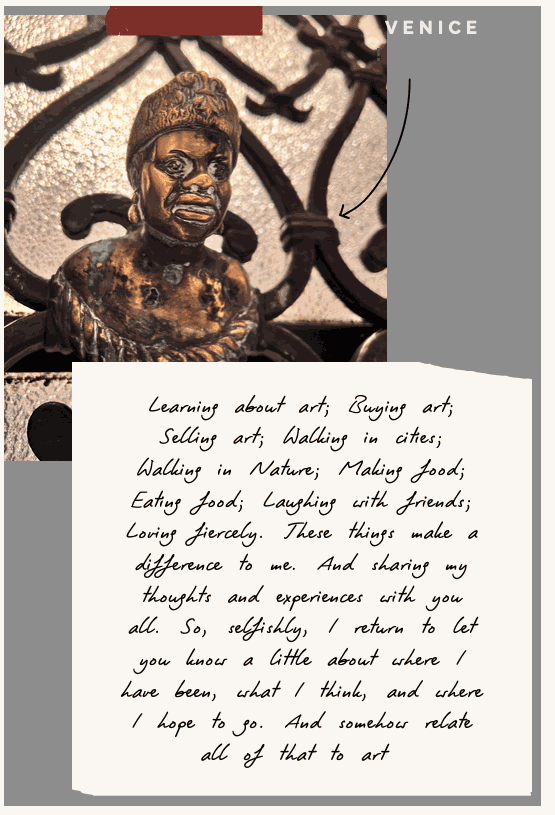 VENICE
Learning about art; Buying art;
Selling art; Walking in cities;
Walking in Nature; Making food;
Eating food; Laughing with friends;
Loving fiercely. These things make a
difference to me. And sharing my
thoughts and experiences with you
all. So, selfishly, I return to let
you know a little about where I
have been, what I think, and where
I hope to go. And somehow relate
all of that to art